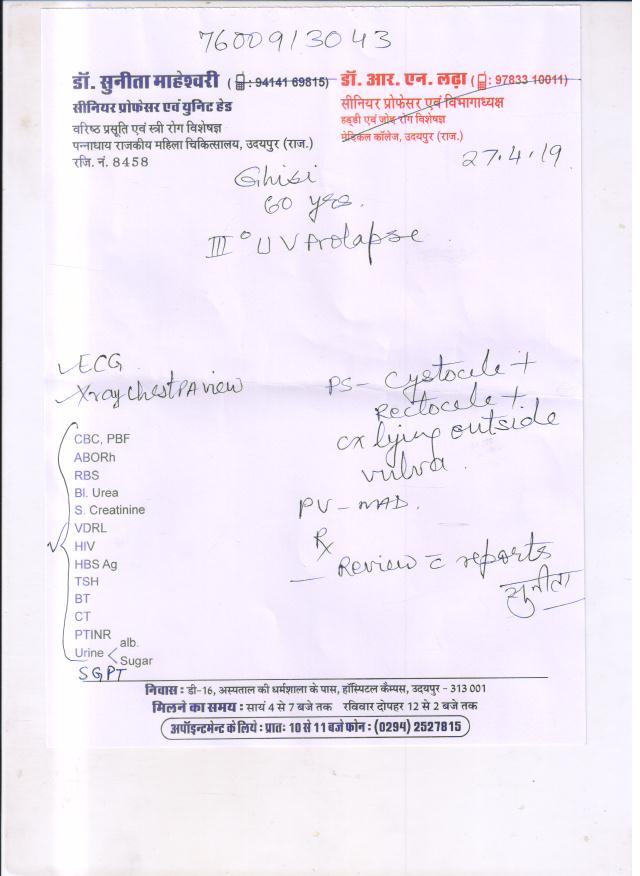 7600913043
डॉ. सुनीता माहेश्वरी (: 94141 69815)
सीनियर प्रोफेसर एवं यूनिट हेड
वरिष्ठ प्रसूति एवं स्त्री रोग विशेषज्ञ
पन्नाधाय राजकीय महिला चिकित्सालय, उदयपुर (राज.)
रजि. नं. 8458
डॉ. आर. एन. लढ़ा (: 97833 10011)
सीनियर प्रोफेसर एवं विभागाध्यक्ष
हड्डी एवं जोड़ रोग विशेषज्ञ
मेडिकल कॉलेज, उदयपुर (राज.)
27.4.19
Ghisi
60 yrs.
III° UV Prolapse
ECG
Xray Chest PA view
CBC, PBF
ABORh
RBS
Bl. Urea
S. Creatinine
VDRL
HIV
HBS Ag
TSH
BT
CT
PTINR
Urine < alb.
Sugar
SGPT
PS - Cystocele +
Rectocele +
cx lying outside
vulva.
PV - NAD.
Rx
Review c̄ reports
सुनीता
निवास : डी-16, अस्पताल की धर्मशाला के पास, हॉस्पिटल कैम्पस, उदयपुर - 313 001
मिलने का समय : सायं 4 से 7 बजे तक रविवार दोपहर 12 से 2 बजे तक
अपॉइन्टमेन्ट के लिये : प्रातः 10 से 11 बजे फोन : (0294) 2527815